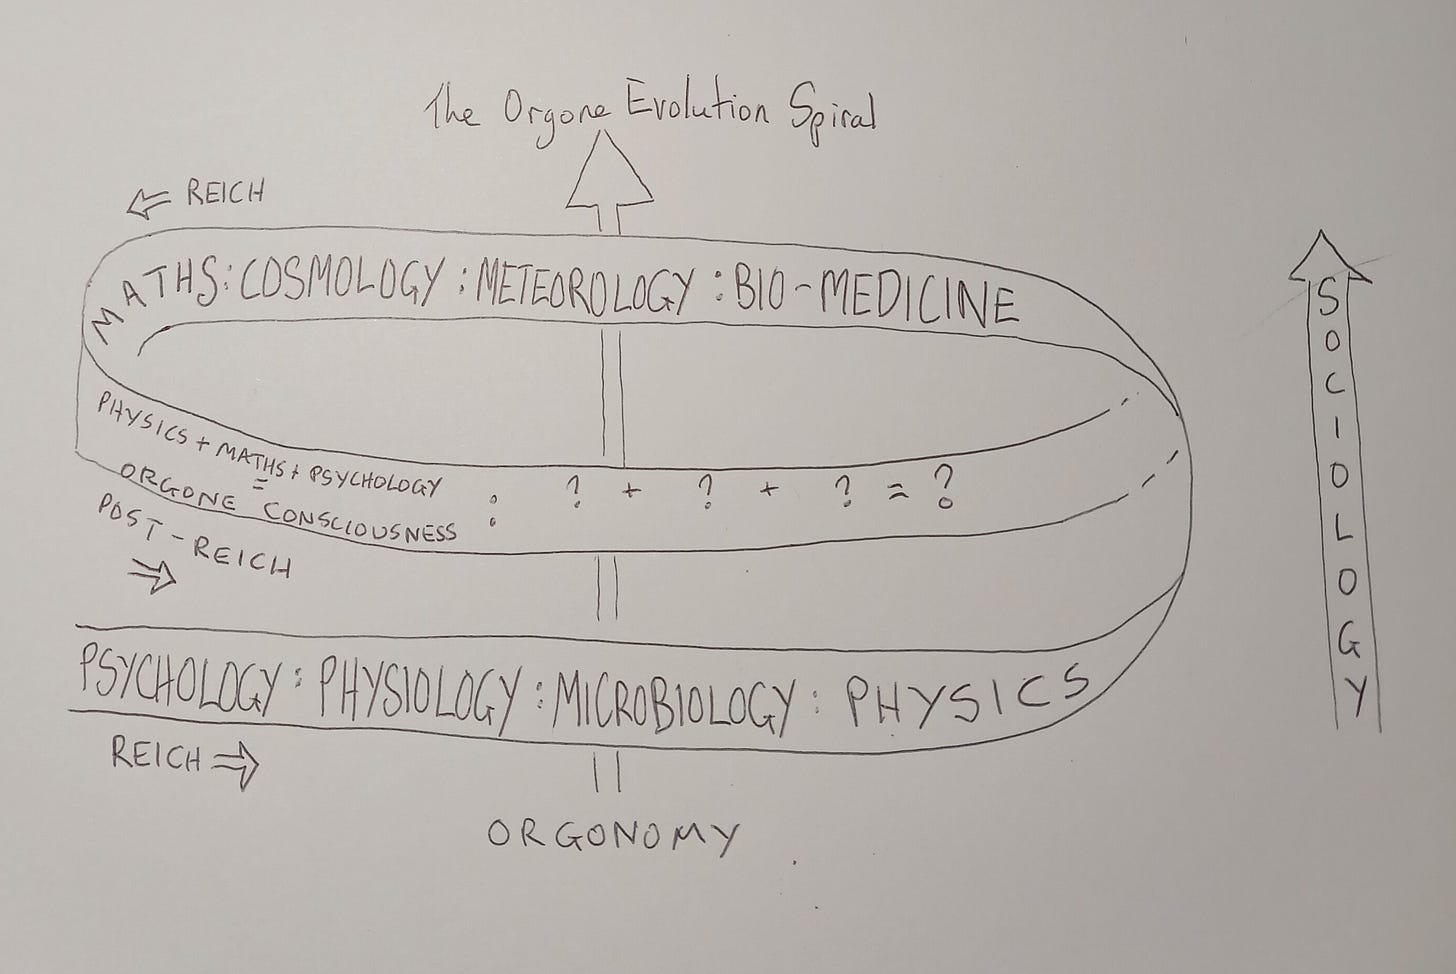 The Orgone Evolution Spiral
⇐ REICH
MATHS : COSMOLOGY : METEOROLOGY : BIO-MEDICINE
PHYSICS + MATHS + PSYCHOLOGY
=
ORGONE CONSCIOUSNESS
: ? + ? + ? = ?
POST-REICH
⇒
PSYCHOLOGY : PHYSIOLOGY : MICROBIOLOGY : PHYSICS
REICH ⇒
ORGONOMY
SOCIOLOGY